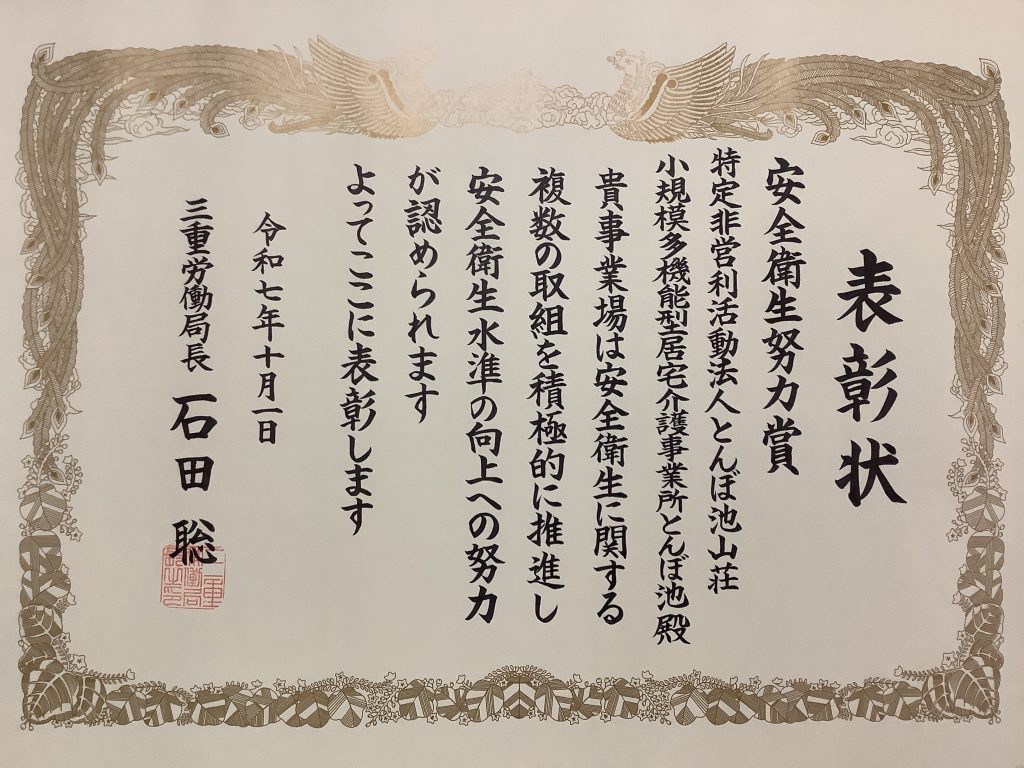 表彰状
安全衛生努力賞
特定非営利活動法人とんぼ池山荘
小規模多機能型居宅介護事業所とんぼ池殿
貴事業場は安全衛生に関する
複数の取組を積極的に推進し
安全衛生水準の向上への努力
が認められます
よってここに表彰します
令和七年十月一日
三重労働局長 石田 聡